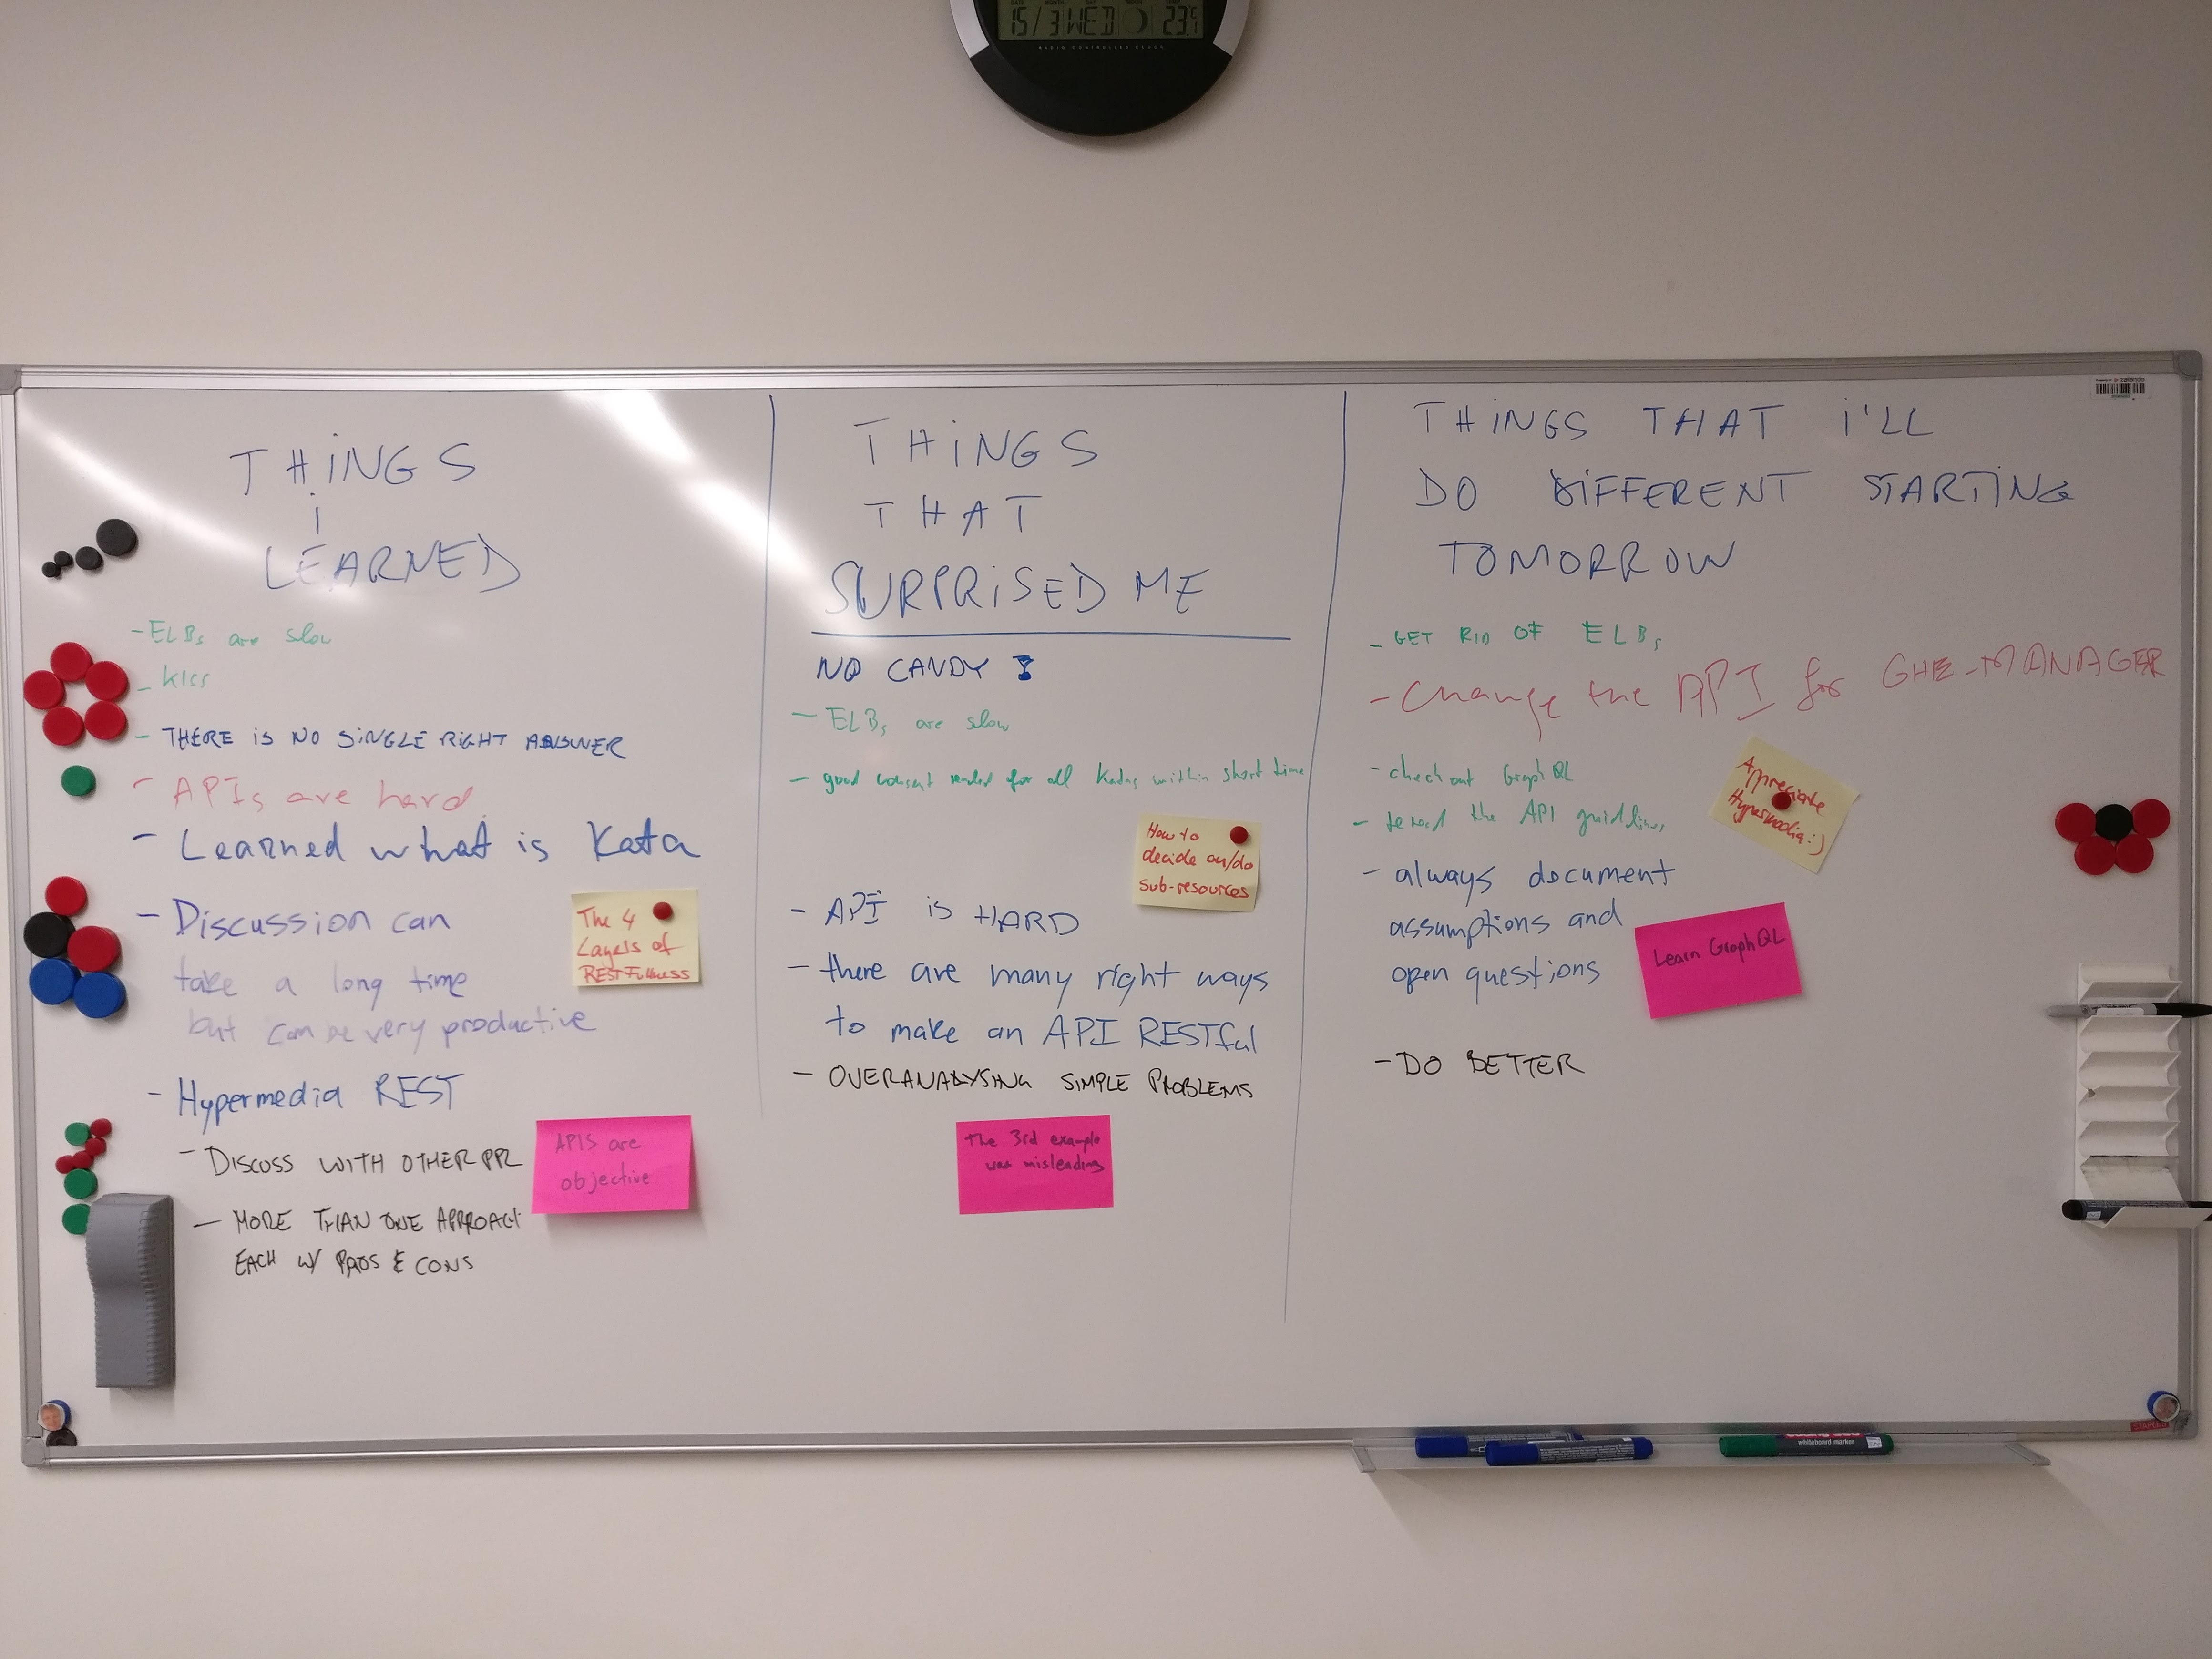 15/3 WED 23.
RADIO CONTROLLED CLOCK
zalando
THiNGS
i
LEARNED
- ELBs are slow
- kiss
- THERE IS NO SiNGLE RIGHT ANSWER
- APIs are hard
- Learned what is Kata
- Discussion can
take a long time
but can be very productive
The 4
Layers of
RESTFullness
- Hypermedia REST
- DISCUSS WITH OTHER PPL
APIS are
objective
- MORE THAN ONE APPROACH
EACH W/ PROS & CONS
THiNGS
THAT
SURPRiSED ME
NO CANDY
- ELBs are slow
- good for all Katas within short time
How to
decide on/do
sub-resources
- API is HARD
- there are many right ways
to make an API RESTful
- OVERANALYSING SIMPLE PROBLEMS
The 3rd example
was misleading
THiNGS THAT i'LL
DO DiFFERENT STARTiNG
TOMORROW
- GET RID OF ELBs
- Change the API for GHE-MANAGER
- check out GraphQL
Appreciate
Hypermedia :)
- the API guidelines
- always document
assumptions and
open questions
Learn GraphQL
- DO BETTER
STAPLES
whiteboard marker